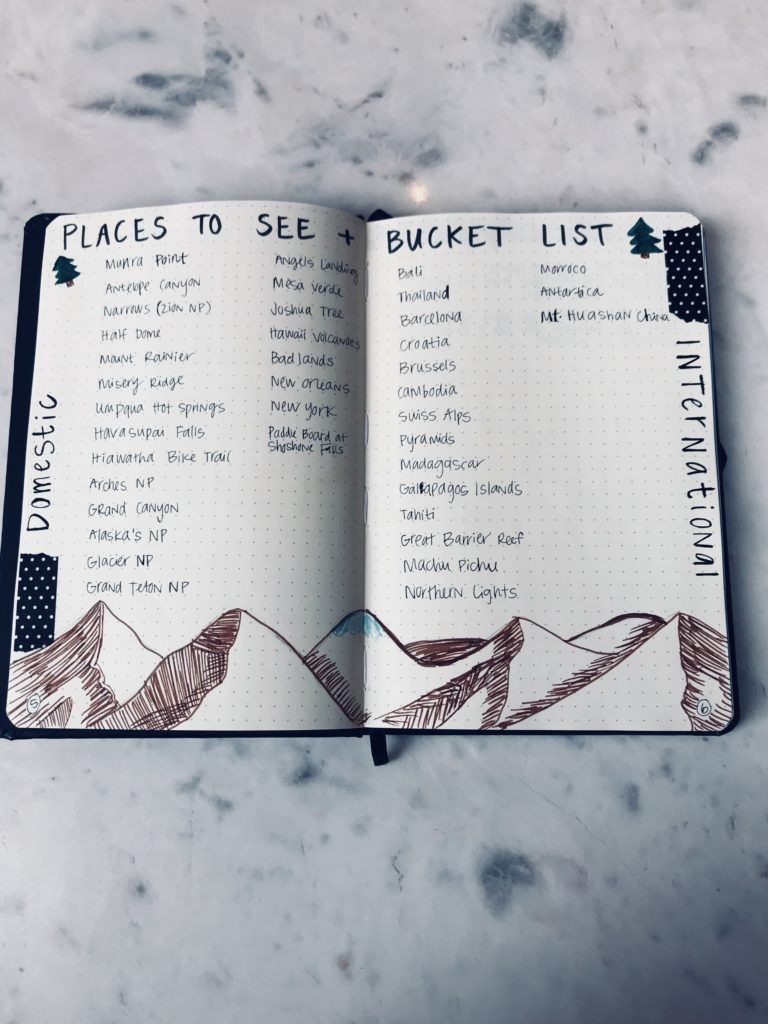 PLACES TO SEE +
Domestic
Munra Point
Antelope Canyon
Narrows (Zion NP)
Half Dome
Mount Rainier
Misery Ridge
Umpqua Hot Springs
Havasupai Falls
Hiawatha Bike Trail
Arches NP
Grand Canyon
Alaska's NP
Glacier NP
Grand Teton NP
Angels Landing
Mesa Verde
Joshua Tree
Hawaii Volcanoes
Badlands
New Orleans
New York
Paddle Board at
Shoshone Falls
5
BUCKET LIST
Bali
Thailand
Barcelona
Croatia
Brussels
Cambodia
Suiss Alps
Pyramids
Madagascar
Gallapagos Islands
Tahiti
Great Barrier Reef
Machu Pichu
Northern Lights
Morroco
Antartica
Mt. Huashan China
International
6